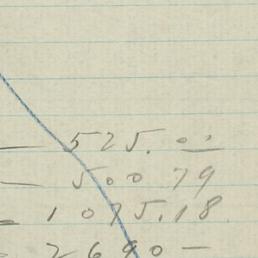 — 525.00
— 500 79
= 1075.18
= 2690 —